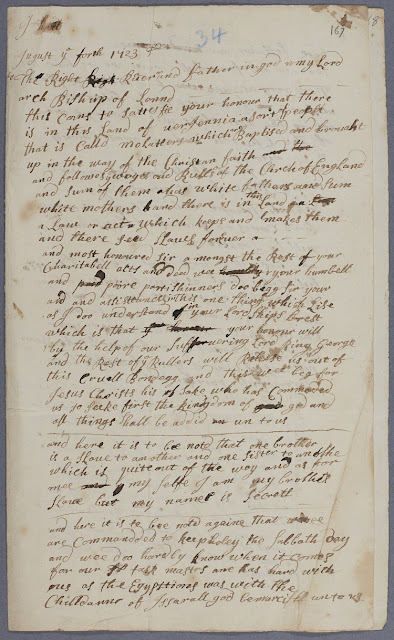 34
167
8
August ye forth 1723
to The Right Raverrand father in god my Lord
arch Bishup of Lonnd
this coms to sattesfie your honour that there
is in this Land of verjennia a Sort of people
that is Calld molatters which are Baptised and brouaht
up in the way of the Christian faith and the
and followes ye wayes and Rulles of the Chrch of England
and sum of them has white fathars and sum
white mothers and there is in this Land a Law
a Law or act which keeps and makes them
and there seed Slaves forever
and most honoured sir a mongst the Rest of your
Charitabell acts and deed wee your humbell
and poore partishinners doo begg Sir your
aid and assisttancce in this one thing which Lise
as I doo understand in your LordShips brest
which is that your honour will
by the help of our Suffervering Lord King George
and the Rest of ye Rullers will Releese us out of
this Cruell Bondegg and this wee beg for
Jesus Christs his Sake who has Commaded
us to seeke first the kingdom of god and
all things shall be addid un to us
and here it is to bee notd that one brother
is a Slave to another and one Sister to an othe
which is quite out of the way and as for
mee my selfe I am my brothers
Slave but my name is Secrett
and here it is to bee notd againe that wee
are commandded to keep holey the Sabbath day
and wee doo hardly know when it comes
for our task mastrs are has hard with
us as the Egypttions was with the
Chilldann of Issarall god be marcifll unto us